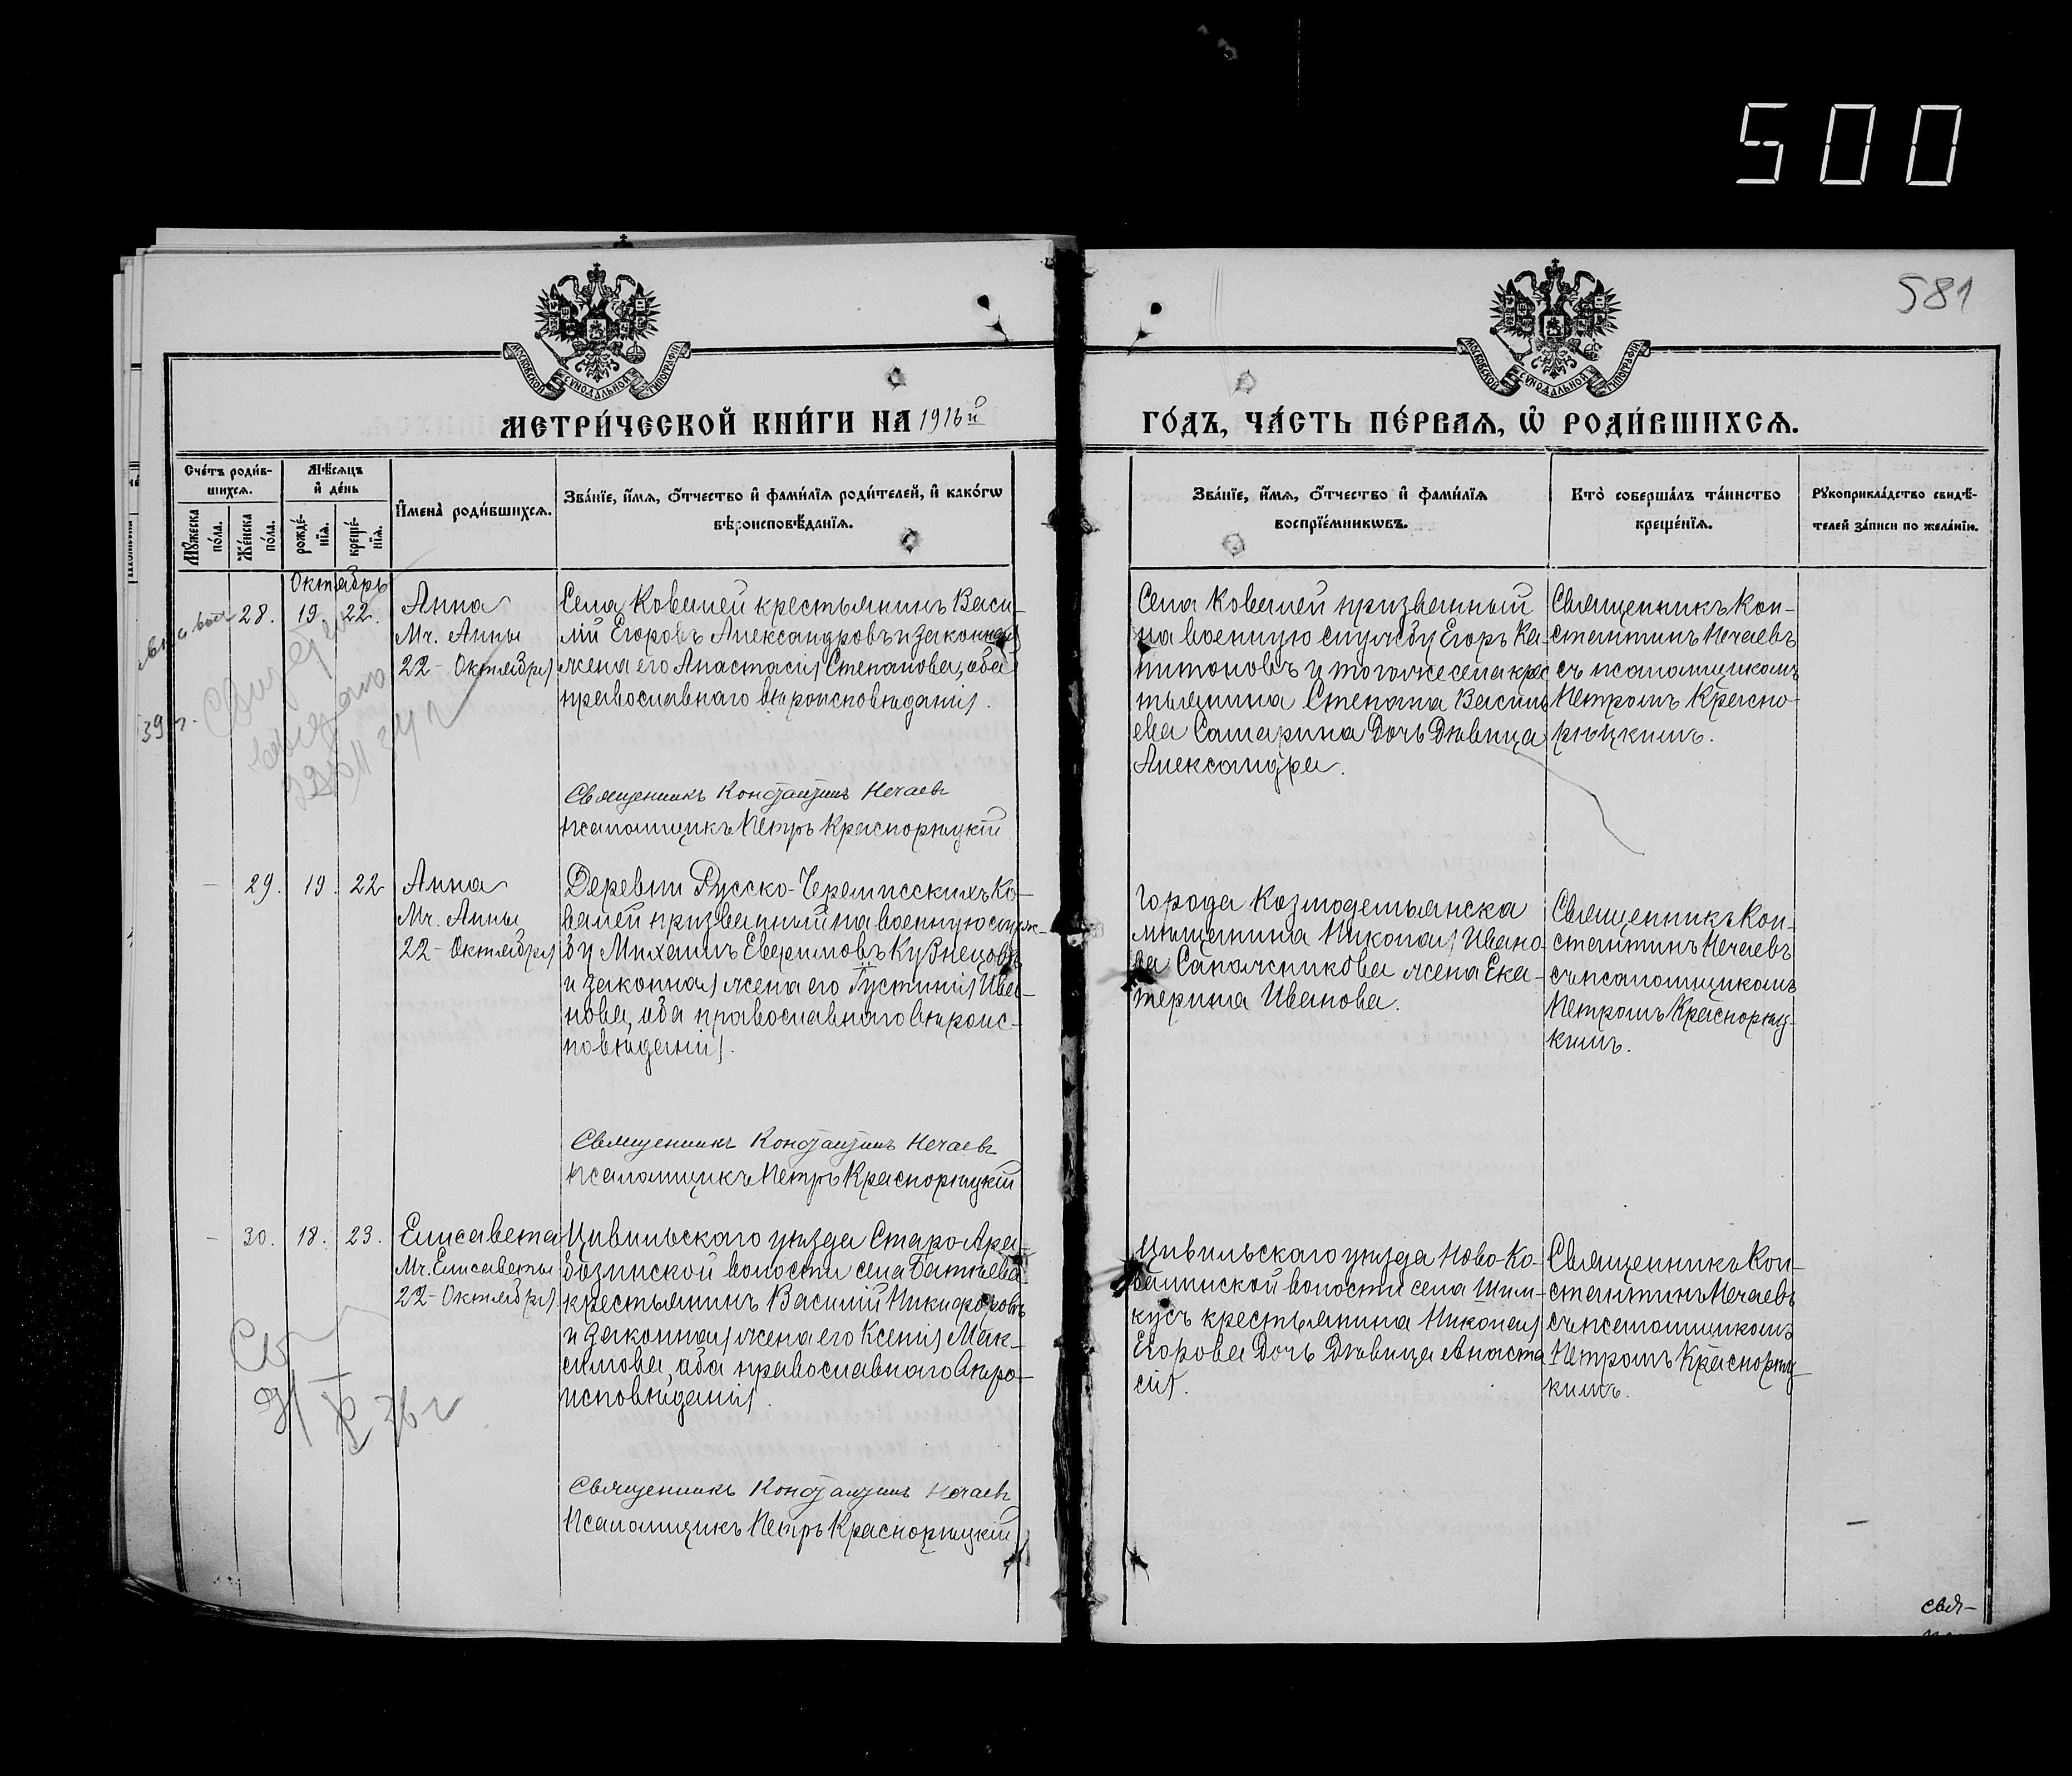 500
581
МОСКОВСКОЙ СѴНОДАЛЬНОЙ ТИПОГРАФІИ
МОСКОВСКОЙ СѴНОДАЛЬНОЙ ТИПОГРАФІИ
МЕТРИ́ЧЕСКОЙ КНИ́ГИ НА 1916й
ГО́ДЪ, ЧА́СТЬ ПЕ́РВАЯ, Ѡ҆ РОДИ́ВШИХСЯ.
Сче́тъ роди́в-
шихся.
Мѣ́сяцъ
и҆ де́нь
Мꙋ́жеска
по́ла.
Же́нска
по́ла.
рожде́-
нїя.
креще́-
нїя.
И҆мена̀ роди́вшихся.
Зва́нїе, и҆́мя, ѻ҆́тчество и҆ фами́лїя роди́телей, и҆ како́гѡ
вѣроисповѣ́данїя.
Зва́нїе, и҆́мя, ѻ҆́тчество и҆ фами́лїя
воспрїе́мникѡвъ.
Кто̀ соверша́лъ та́инство
креще́нїя.
Рꙋкоприкла́дство свидѣ́-
телей за́писи по жела́нїю.
Октябрь
28. 19 22.
Анна
Мч. Анны
22 - Октября
Села Ковалей крестьянинъ Васи-
лій Егоровъ Александровъ и законная
жена его Анастасія Степанова, оба
православнаго вѣроисповѣданія.
Священникъ Константинъ Нечаевъ
Псаломщикъ Петръ Краснорѣцкій
Села Ковалей призванный
на военную службу Егоръ Ка-
питоновъ и того же села крес
тьянина Степана Василь
ева Самарина дочь девица
Александра.
Священникъ Кон-
стантинъ Нечаевъ
съ псаломщикомъ
Петромъ Красно-
рѣцкимъ.
39 г.
- 29. 19. 22
Анна
Мч. Анны
22 - Октября
Деревни Русско-Черемисскихъ Ко-
валей призванный на военную служ-
бу Михаилъ Евфимовъ Кузнецовъ
и законная жена его Іустинія Ива-
нова, оба православнаго вѣроис-
повѣданія.
Священникъ Константинъ Нечаевъ
Псаломщикъ Петръ Краснорѣцкій
Города Козмодемьянска
мѣщанина Николая Ивано-
ва Сапожникова жена Ека-
терина Иванова.
Священникъ Кон-
стантинъ Нечаевъ
съ псаломщикомъ
Петромъ Краснорѣц-
кимъ.
- 30. 18. 23.
Елисавета
Мч. Елисаветы
22 - Октября
Цивильскаго уѣзда Старо-Ара-
бозинской волости села Батѣева
крестьянинъ Василій Никифоровъ
и законная жена его Ксенія Мак-
симова, оба православнаго вѣро-
исповѣданія.
Священникъ Константинъ Нечаевъ
Псаломщикъ Петръ Краснорѣцкій
Цивильскаго уѣзда Ново-Ко-
валинской волости села Шим-
кусъ крестьянина Николая
Егорова дочь девица Анаста
сія.
Священникъ Кон-
стантинъ Нечаевъ
съ псаломщикомъ
Петромъ Краснорѣц-
кимъ.
свя-